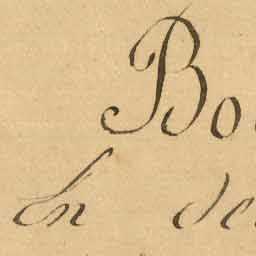 Bo
In de